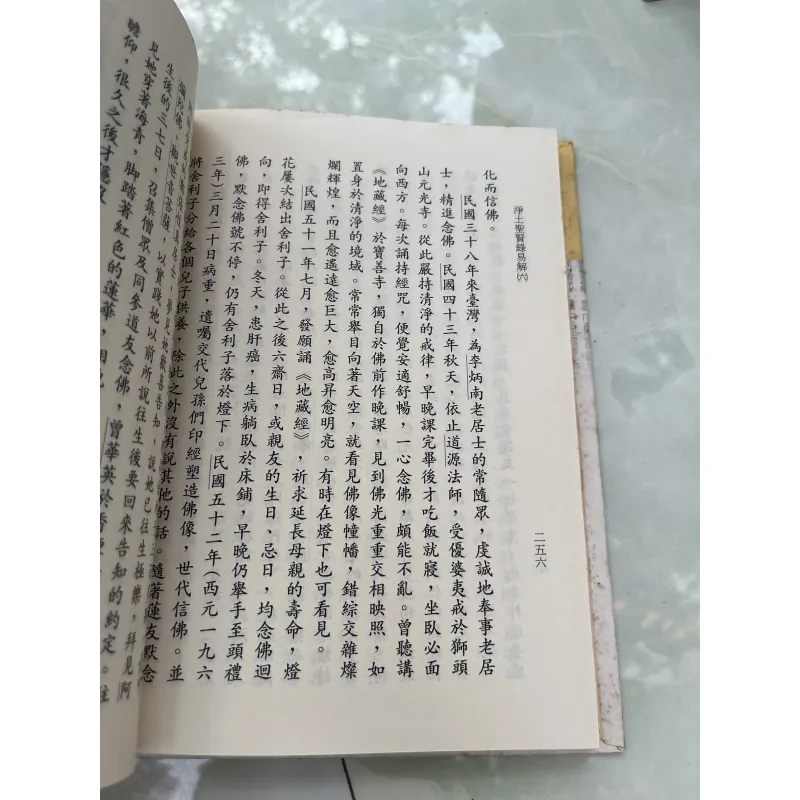 淨土聖賢錄易解㈥
二五六
化而信佛。
民國三十八年來臺灣，為李炳南老居士的常隨眾，虔誠地奉事老居
士，精進念佛。民國四十三年秋天，依止道源法師，受優婆夷戒於獅頭
山元光寺。從此嚴持清淨的戒律，早晚課完畢後才吃飯就寢，坐臥必面
向西方。每次誦持經咒，便覺安適舒暢，一心念佛，頗能不亂。曾聽講
《地藏經》於寶善寺，獨自於佛前作晚課，見到佛光重重交相映照，如
置身於清淨的境域。常常舉目向著天空，就看見佛像幢幡，錯綜交雜燦
爛輝煌，而且愈遙遠愈巨大，愈高昇愈明亮。有時在燈下也可看見。
民國五十一年七月，發願誦《地藏經》，祈求延長母親的壽命，燈
花屢次結出舍利子。從此之後六齋日，或親友的生日、忌日，均念佛迴
向，即得舍利子。冬天，患肝癌，生病躺臥於床鋪，早晚仍舉手至頭禮
佛，默念佛號不停，仍有舍利子落於燈下。民國五十二年（西元一九六
三年）三月二十日病重，遺囑交代兒孫們印經塑造佛像，世代信佛。並
將舍利子分給各個兒子供養，除此之外沒有說其他的話。隨著蓮友默念
居士，夢見她歡喜告知，說她已往生極樂，拜見阿
彌陀佛、觀世音菩薩，以實踐她以前所說往生後要回來告知的約定。往
生後的三七日，召集僧眾及同參道友念佛，曾華英於
見她穿著海青，腳踏著紅色的蓮華，相
瞻仰，很久之後才